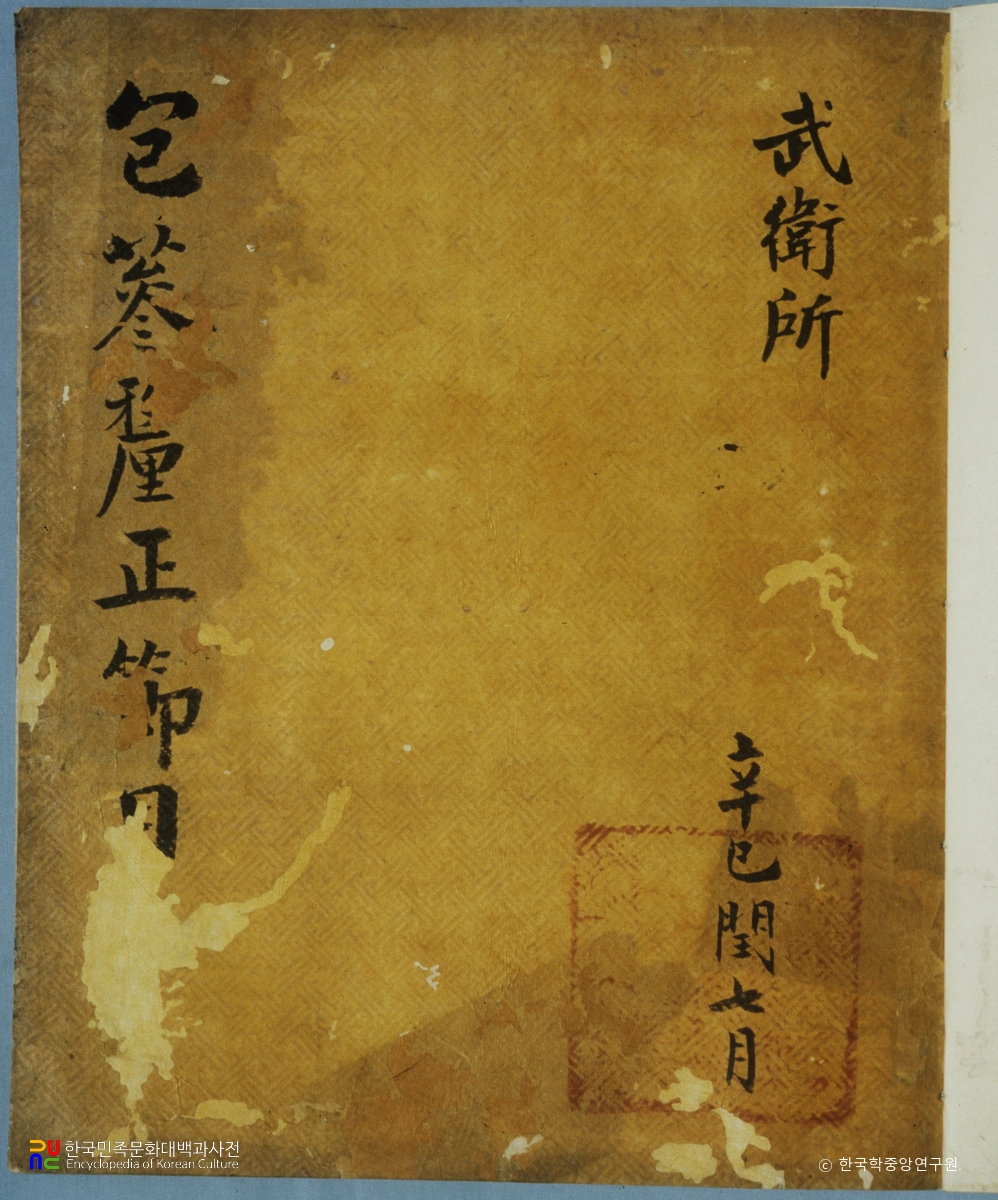 武衛所
辛巳閏七月
包蔘釐正節目
한국민족문화대백과사전
Encyclopedia of Korean Culture
© 한국학중앙연구원